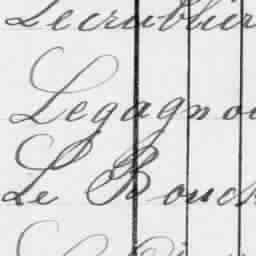 Lecrublier
Legagnou
Le Bouch